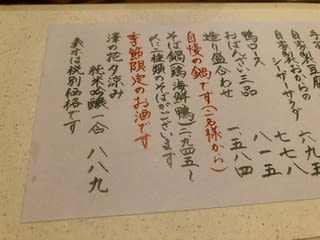 自家製豆腐 六九五
自家製おからの
シーザーサラダ 七七八
鴨ロース
おばんざい三品
造り盛合わせ 一、五八四
自慢の鍋です(二名様から)
そば鍋(鶏海鮮鴨)二九四五〜
他に二種類のそばがございます
季節限定のお酒です
澤の花夕涼み
純米吟醸一合 八八九
表示は税別価格です